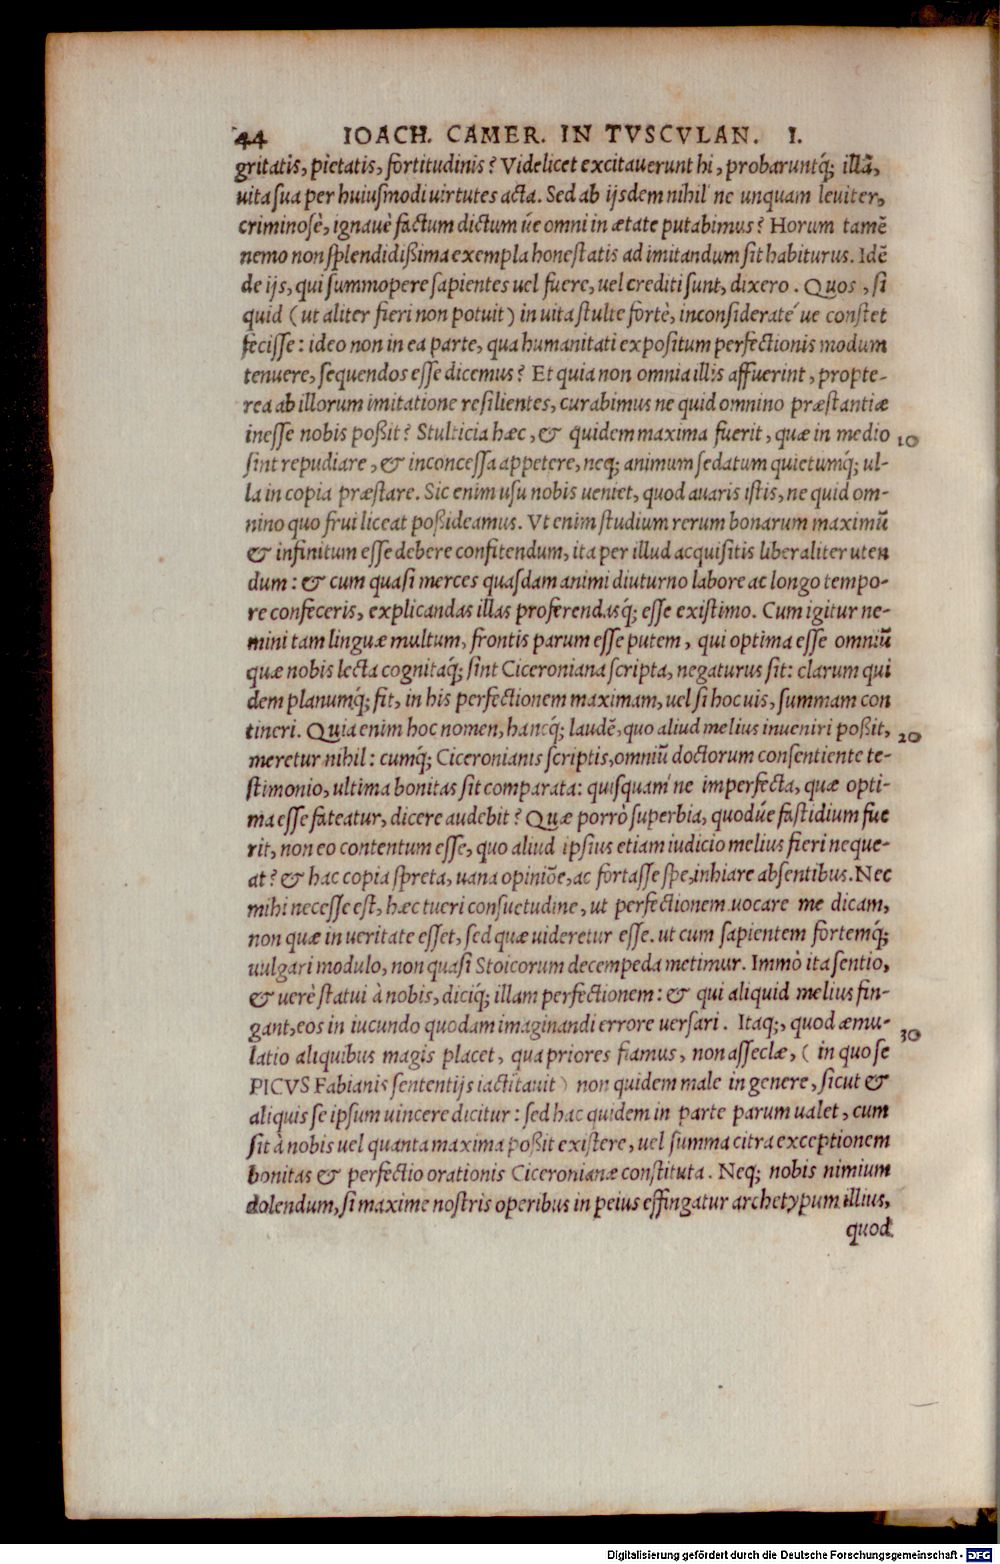 44 IOACH. CAMER. IN TVSCVLAN. I.
gritatis, pietatis, fortitudinis? Videlicet excitauerunt hi, probaruntq́; illā,
uita sua per huiusmodi uirtutes acta. Sed ab ijsdem nihil ne unquam leuiter,
criminosè, ignauè factum dictum úe omni in ætate putabimus? Horum tamē
nemo non splendidißima exempla honestatis ad imitandum sit habiturus. Idē
de ijs, qui summopere sapientes uel fuere, uel crediti sunt, dixero. Quos, si
quid (ut aliter fieri non potuit) in uita stulte fortè, inconsideraté ue constet
fecisse: ideo non in ea parte, qua humanitati expositum perfectionis modum
tenuere, sequendos esse dicemus? Et quia non omnia illis affuerint, propte-
rea ab illorum imitatione resilientes, curabimus ne quid omnino præstantiæ
inesse nobis poßit? Stulticia hæc, & quidem maxima fuerit, quæ in medio 10
sint repudiare, & inconcessa appetere, neq; animum sedatum quietumq́; ul-
la in copia præstare. Sic enim usu nobis ueniet, quod auaris istis, ne quid om-
nino quo frui liceat poßideamus. Vt enim studium rerum bonarum maximū
& infinitum esse debere confitendum, ita per illud acquisitis liberaliter uten
dum: & cum quasi merces quasdam animi diuturno labore ac longo tempo-
re confeceris, explicandas illas proferendasq́; esse existimo. Cum igitur ne-
mini tam linguæ multum, frontis parum esse putem, qui optima esse omniū
quæ nobis lecta cognitaq́; sint Ciceroniana scripta, negaturus sit: clarum qui
dem planumq́; fit, in his perfectionem maximam, uel si hoc uis, summam con
tineri. Quia enim hoc nomen, hancq́; laudē, quo aliud melius inueniri poßit, 20
meretur nihil: cumq́; Ciceronianis scriptis, omniū doctorum consentiente te-
stimonio, ultima bonitas sit comparata: quisquam ne imperfecta, quæ opti-
ma esse fateatur, dicere audebit? Quæ porrò superbia, quodúe fastidium fue
rit, non eo contentum esse, quo aliud ipsius etiam iudicio melius fieri neque-
at? & hac copia spreta, uana opiniōe, ac fortasse spe, inhiare absentibus. Nec
mihi necesse est, hæc tueri consuetudine, ut perfectionem uocare me dicam,
non quæ in ueritate esset, sed quæ uideretur esse. ut cum sapientem fortemq́;
uulgari modulo, non quasi Stoicorum decempeda metimur. Immò ita sentio,
& uerè statui à nobis, diciq́; illam perfectionem: & qui aliquid melius fin-
gant, eos in iucundo quodam imaginandi errore uersari. Itaq;, quod æmu- 30
latio aliquibus magis placet, qua priores fiamus, non asseclæ, (in quo se
PICVS Fabianis sententijs iactitauit) non quidem male in genere, sicut &
aliquis se ipsum uincere dicitur: sed hac quidem in parte parum ualet, cum
sit à nobis uel quanta maxima poßit existere, uel summa citra exceptionem
bonitas & perfectio orationis Ciceronianæ constituta. Neq; nobis nimium
dolendum, si maxime nostris operibus in peius effingatur archetypum illius,
quod
Digitalisierung gefördert durch die Deutsche Forschungsgemeinschaft - DFG